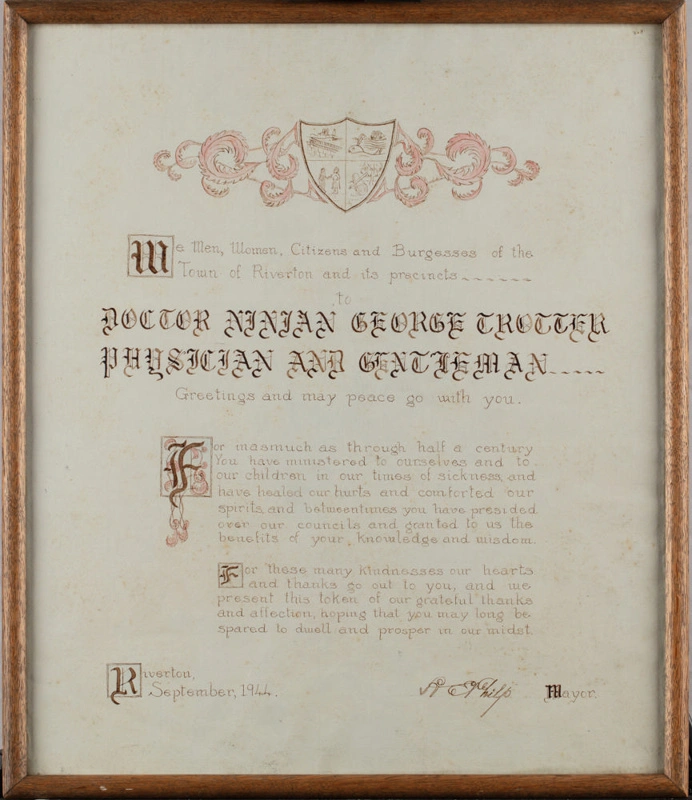 We Men, Women, Citizens and Burgesses of the
Town of Riverton and its precincts
to
DOCTOR NINIAN GEORGE TROTTER
PHYSICIAN AND GENTLEMAN
Greetings and may peace go with you.
For masmuch as through half a century
You have ministered to ourselves and to
our children in our times of sickness, and
have healed our hurts and comforted our
spirits, and betweentimes you have presided
over our councils and granted to us the
benefits of your knowledge and wisdom.
For these many kindnesses our hearts
and thanks go out to you, and we
present this token of our grateful thanks
and affection, hoping that you may long be
spared to dwell and prosper in our midst.
Riverton,
September, 1944.
Philp Mayor.